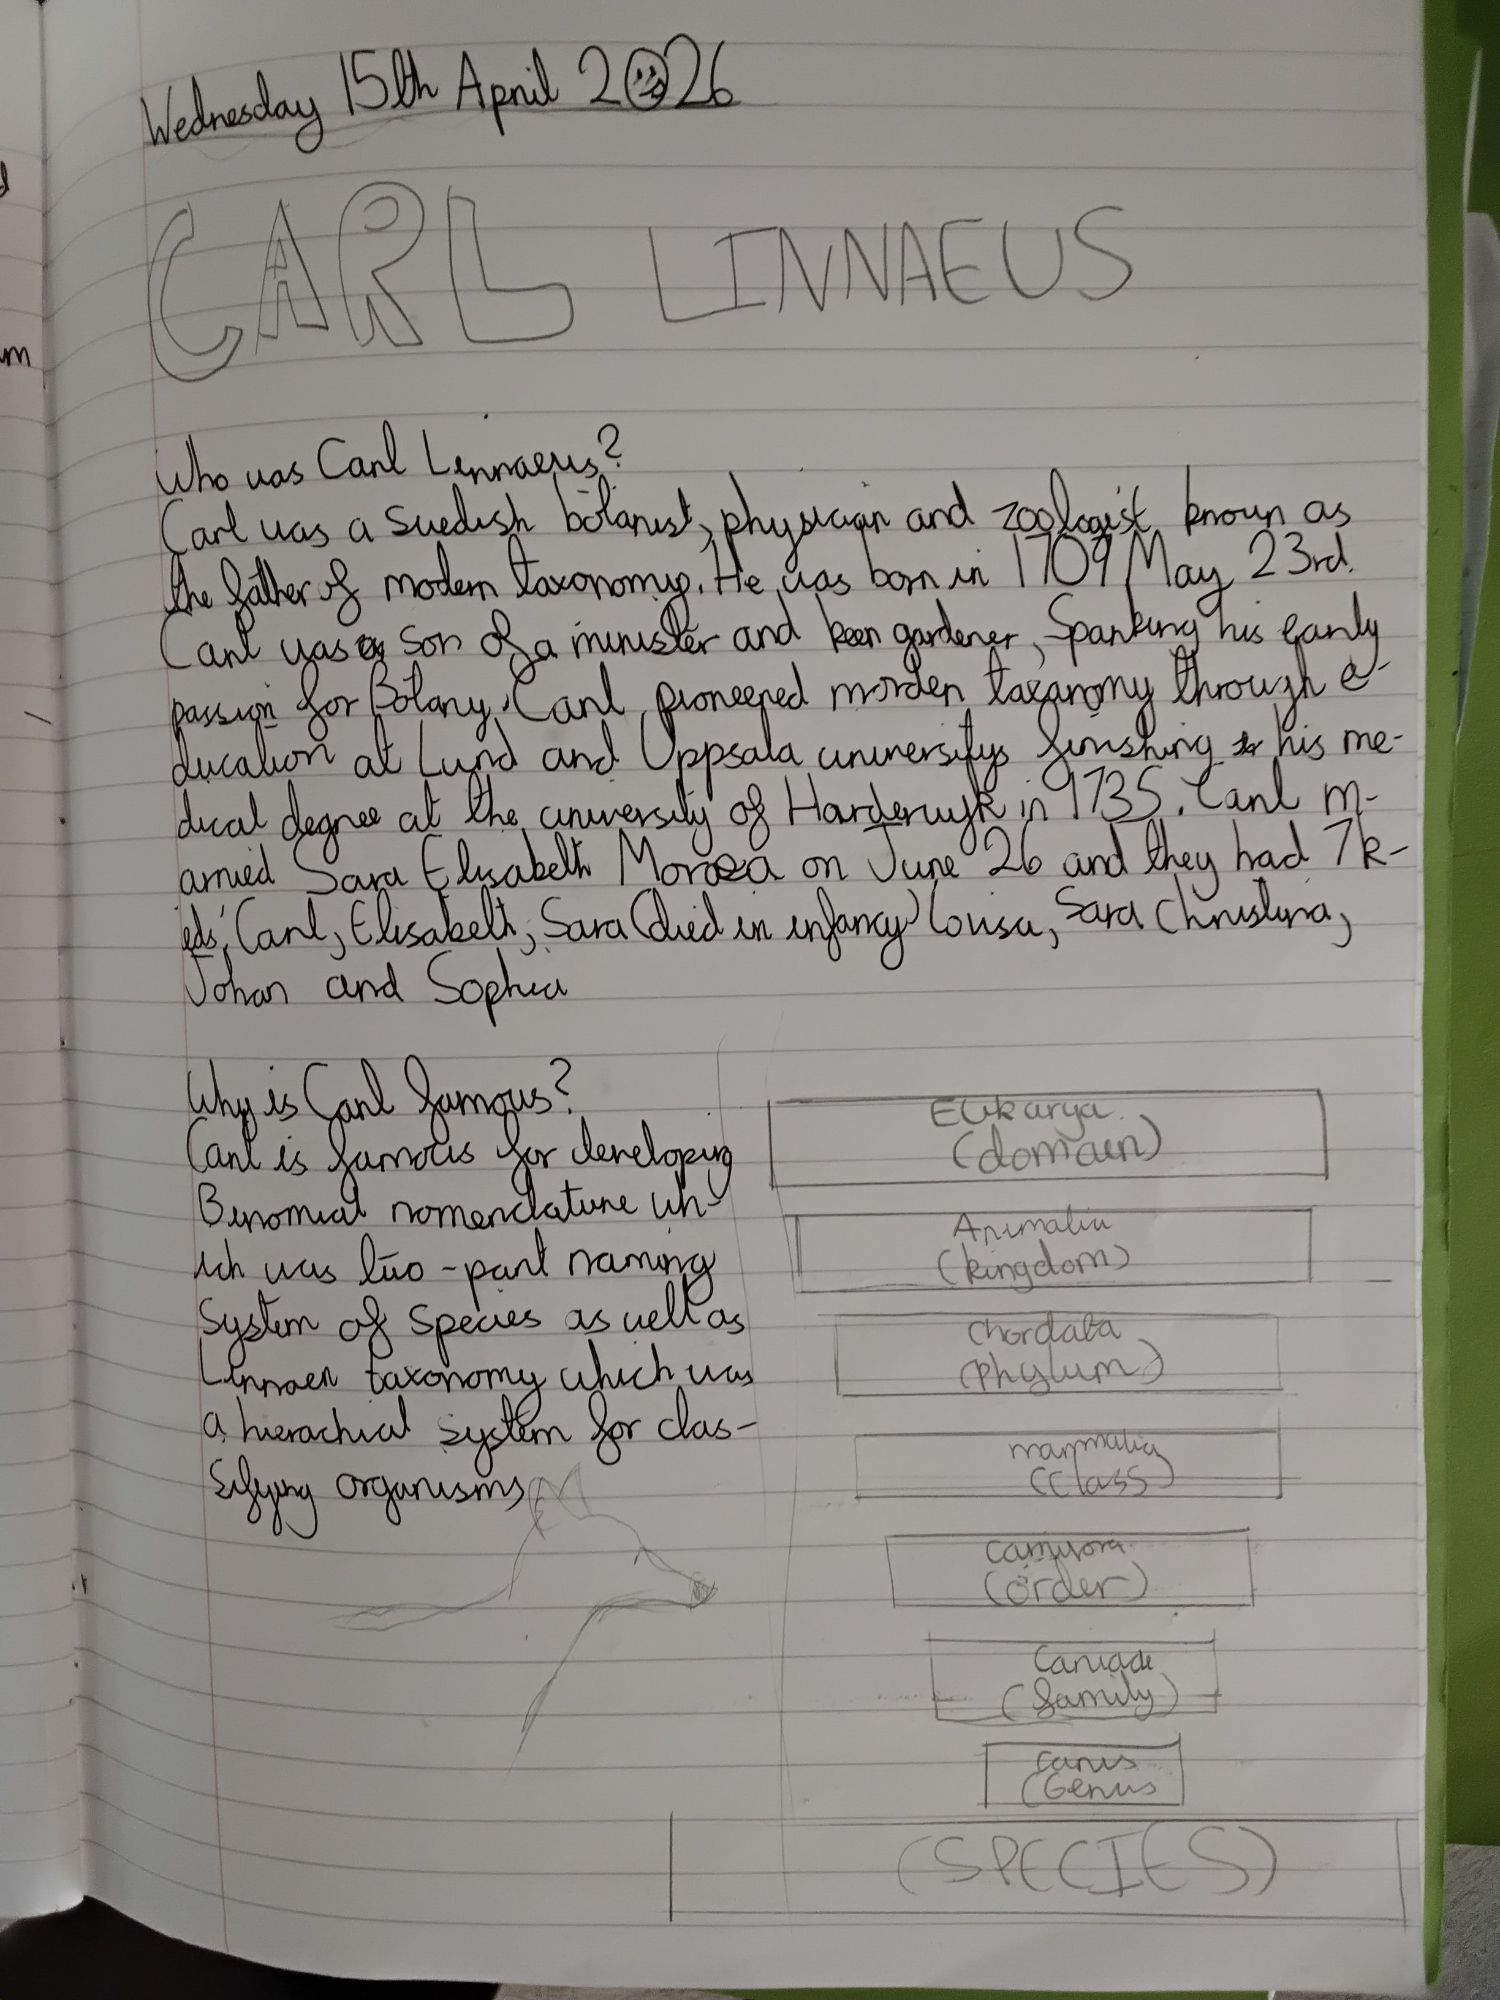 Wednesday 15th April 2026
CARL LINNAEUS
Who was Carl Linnaeus?
Carl was a Swedish botanist, physician and zoologist known as
the father of modern taxonomy. He was born in 1709 May 23rd.
Carl was a son of a minister and keen gardener, Sparking his early
passion for Botany. Carl pioneered morden taxanomy through e-
ducation at Lund and Uppsala universitys finishing his me-
dical degree at the university of Harderwijk in 1735. Carl m-
arried Sara Elisabeth Moraea on June 26 and they had 7 k-
ids; Carl, Elisabeth, Sara (died in infancy) Lovisa, Sara Christina,
Johan and Sophia
Why is Carl famous?
Carl is famous for developing
Binomial nomenclature wh-
ich was two-part naming
System of Species as well as
Linnaen taxonomy which was
a hierachial system for clas-
sifying organisms
Eukarya
(domain)
Animalia
(kingdom)
Chordata
(Phylum)
mammalia
(Class)
Carnivora
(order)
Caniade
(family)
canis
(Genus
(SPECIES)
um